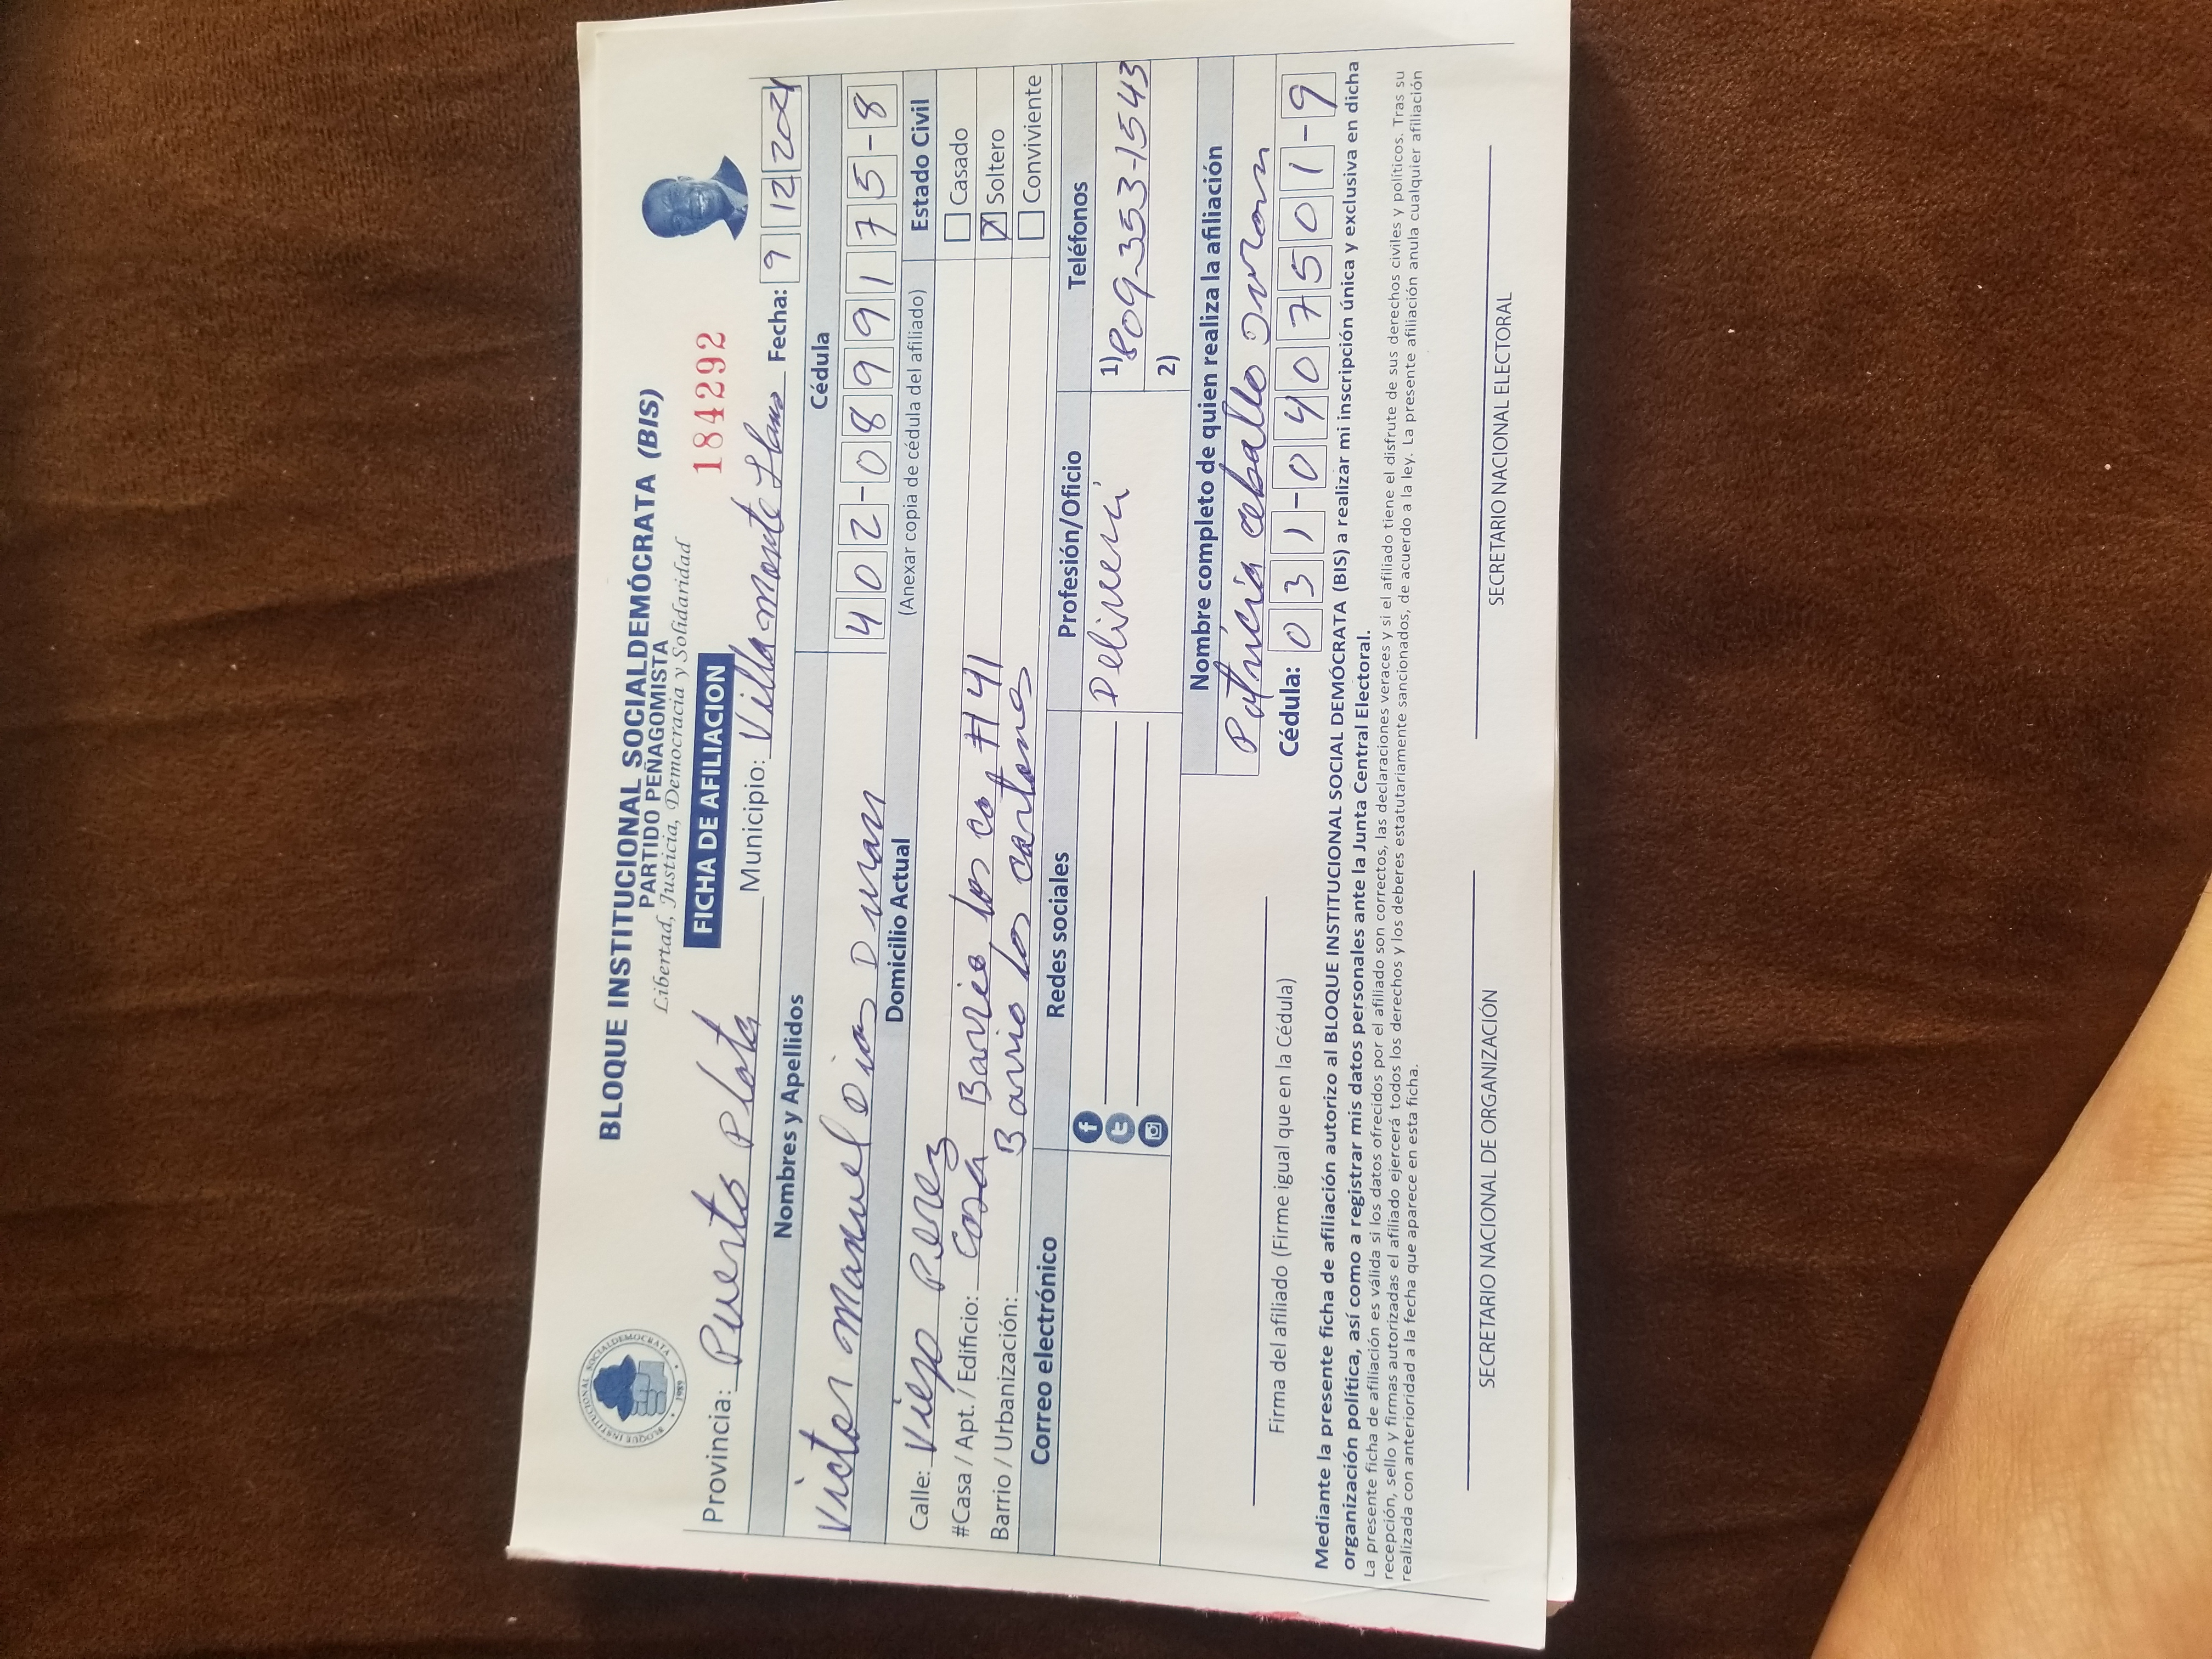 BLOQUE INSTITUCIONAL SOCIALDEMÓCRATA (BIS)
PARTIDO PEÑAGOMISTA
Libertad, Justicia, Democracia y Solidaridad
BLOQUE INSTITUCIONAL SOCIALDEMOCRATA
1989
FICHA DE AFILIACION
184292
Provincia: Puerto Plata Municipio: Villa Monte Llano Fecha: 9 12 2021
Nombres y Apellidos Cédula
Victor Manuel Dias Duran 402-0899175-8
Domicilio Actual (Anexar copia de cédula del afiliado) Estado Civil
Calle: Viejo Perez Casado
#Casa / Apt. / Edificio: Casa Barrio los ca #41 Soltero
Barrio / Urbanización: Barrio los cartones Conviviente
Correo electrónico Redes sociales Profesión/Oficio Teléfonos
Deliveri 1) 809-353-1543
2)
Nombre completo de quien realiza la afiliación
Patricia ceballo Duran
Cédula: 031-0407501-9
Firma del afiliado (Firme igual que en la Cédula)
Mediante la presente ficha de afiliación autorizo al BLOQUE INSTITUCIONAL SOCIAL DEMÓCRATA (BIS) a realizar mi inscripción única y exclusiva en dicha
organización política, así como a registrar mis datos personales ante la Junta Central Electoral.
La presente ficha de afiliación es válida si los datos ofrecidos por el afiliado son correctos, las declaraciones veraces y si el afiliado tiene el disfrute de sus derechos civiles y políticos. Tras su
recepción, sello y firmas autorizadas el afiliado ejercerá todos los derechos y los deberes estatutariamente sancionados, de acuerdo a la ley. La presente afiliación anula cualquier afiliación
realizada con anterioridad a la fecha que aparece en esta ficha.
SECRETARIO NACIONAL DE ORGANIZACIÓN SECRETARIO NACIONAL ELECTORAL